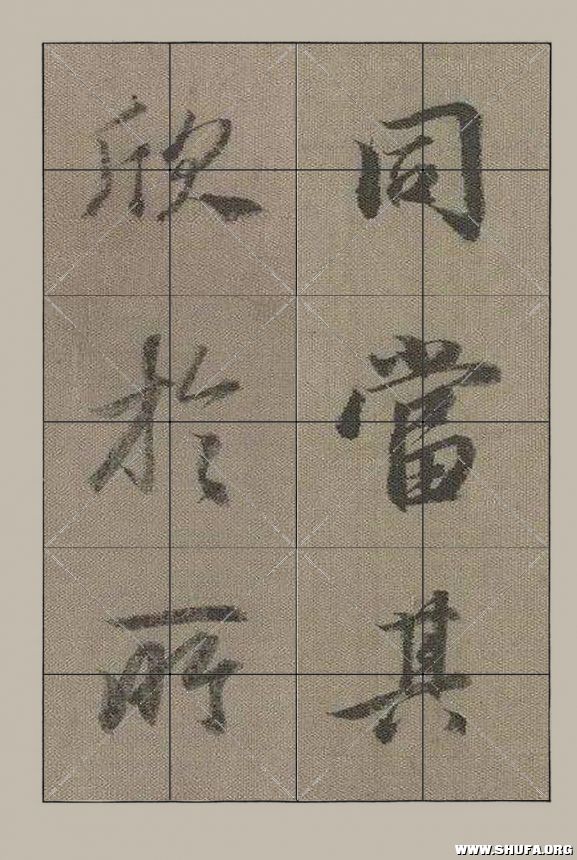 同當其
欣於所
WWW.SHUFA.ORG